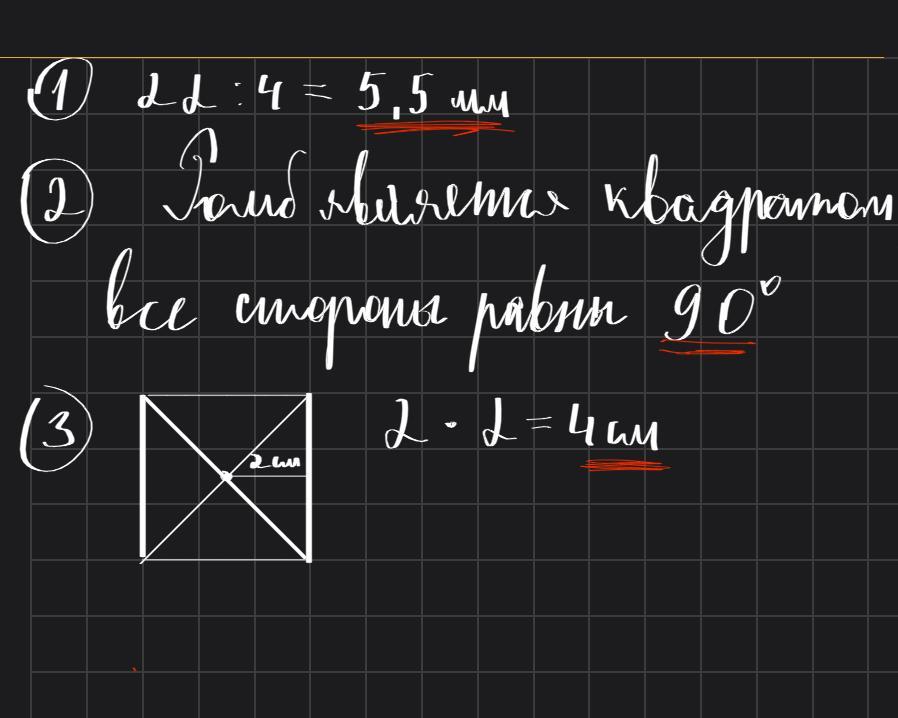 ① 22 : 4 = 5,5 мм
② Ромб является квадратом
все стороны равны 90°
③ 2 · 2 = 4 см
2 см